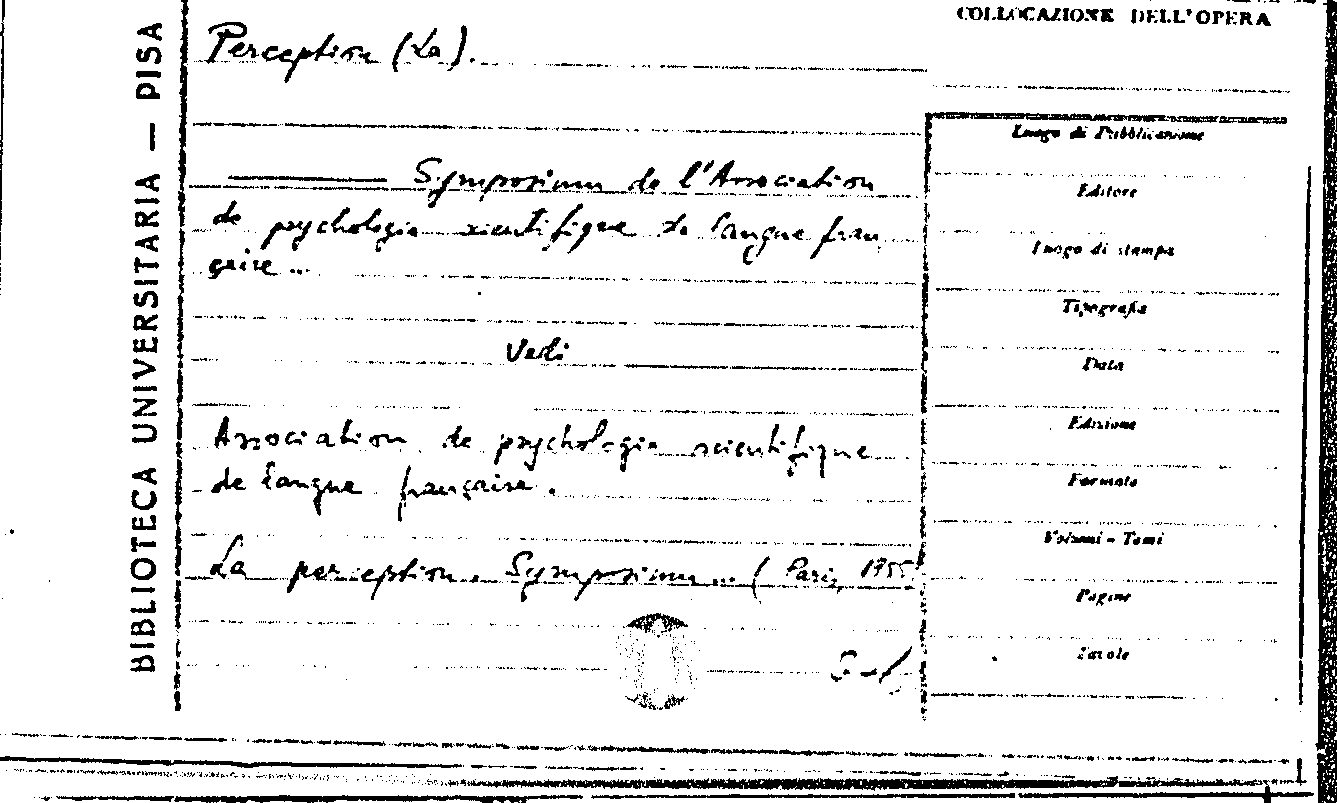 COLLOCAZIONE DELL'OPERA
BIBLIOTECA UNIVERSITARIA — PISA
Perception (La).
——— Symposium de l'Association
de psychologie scientifique de langue fran
çaise ...
Vedi
Association de psychologie scientifique
de langue française.
La perception. Symposium... (Paris, 1955)
Luogo di Pubblicazione
Editore
Luogo di stampa
Tipografia
Data
Edizione
Formato
Volumi - Tomi
Pagine
Tavole